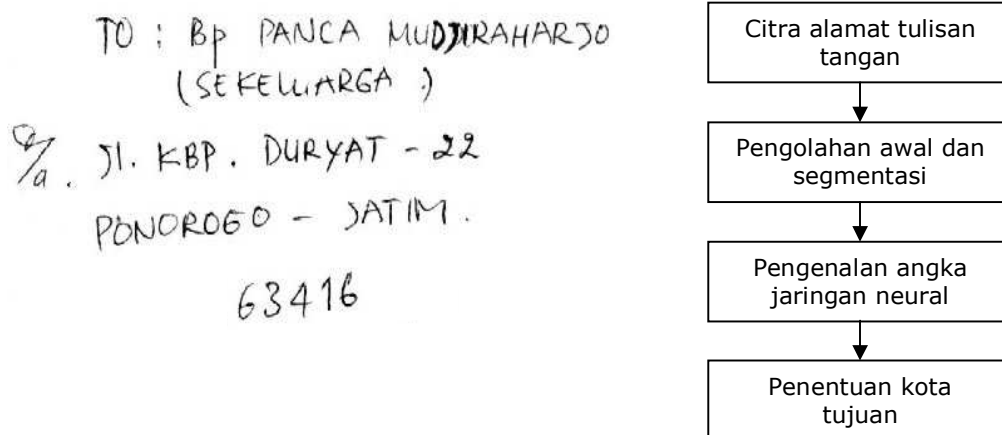 TO : Bp PANCA MUDJIRAHARJO
(SEKELUARGA .)
d/a. Jl. KBP. DURYAT - 22
PONOROGO - JATIM.
63416
Citra alamat tulisan
tangan
Pengolahan awal dan
segmentasi
Pengenalan angka
jaringan neural
Penentuan kota
tujuan